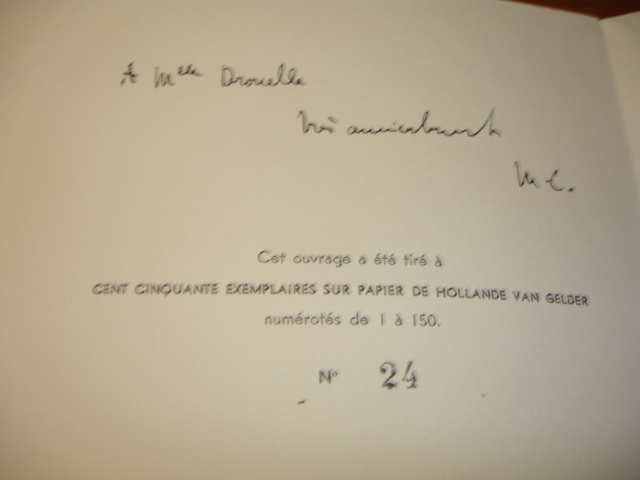 A Mlle Drouelle
très amicalement
M C.
Cet ouvrage a été tiré à
CENT CINQUANTE EXEMPLAIRES SUR PAPIER DE HOLLANDE VAN GELDER
numérotés de 1 à 150.
No 24